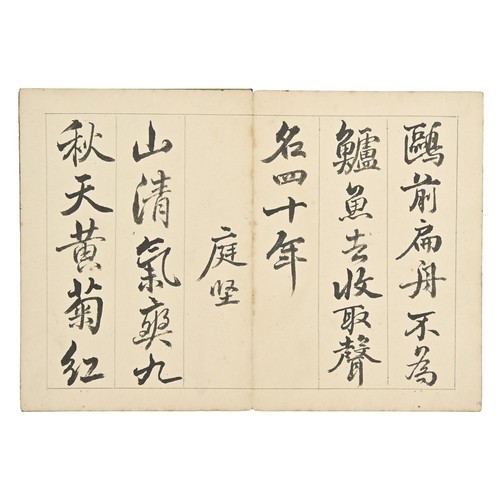 鷗前扁舟不為
鱸魚去收取聲
名四十年
庭堅
山清氣爽九
秋天黃菊紅